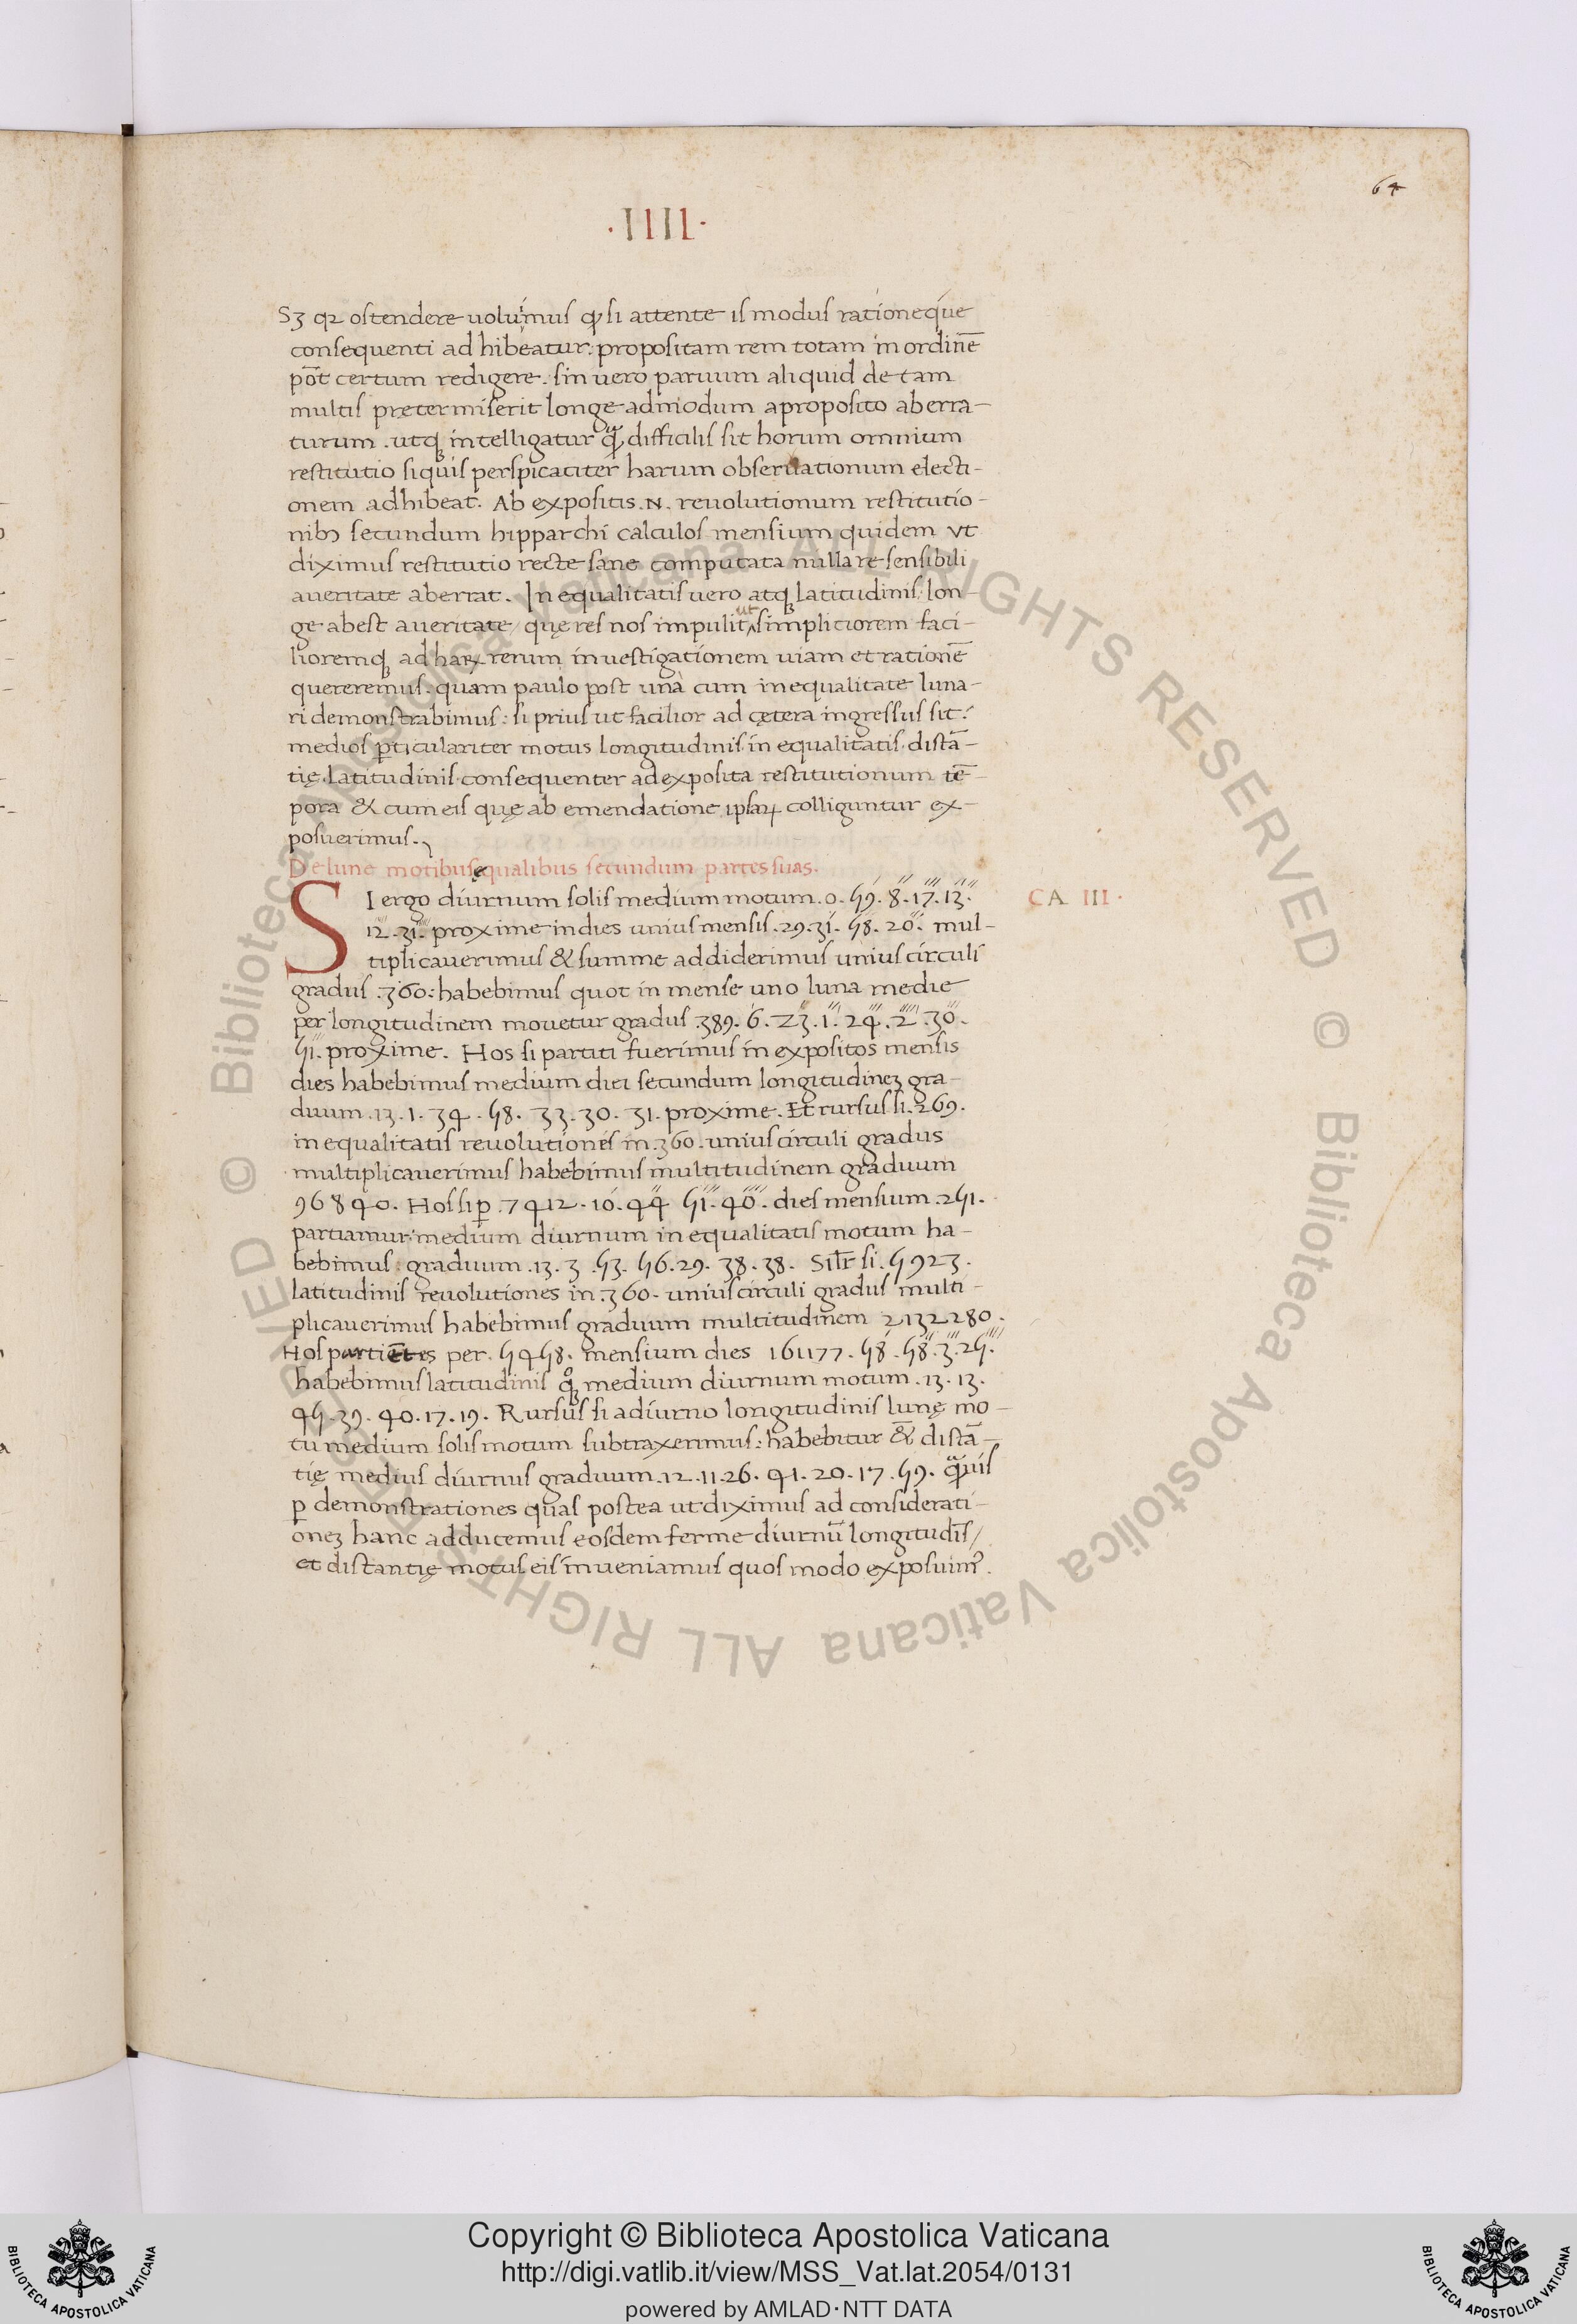 64
.IIII.
Sȝ qꝛ ostendere uolumus ꝙ si attente is modus rationeque
consequenti adhibeatur: propositam rem totam in ordinē
pōt certum redigere. sin uero paruum aliquid de tam
multis pretermiserit longe admodum a proposito aberra-
turum. utqȝ intelligatur q̃ difficilis sit horum omnium
restitutio siquis perspicaciter harum obseruationum electi-
onem adhibeat. Ab expositis .N. reuolutionum restitutio-
nibȝ secundum hipparchi calculos mensium quidem vt
diximus restitutio recte sane computata nulla re sensibili
a ueritate aberrat. Inequalitatis uero atqȝ latitudinis lon-
ge abest a ueritate/ quę res nos impulit ut simpliciorem faci-
lioremqȝ ad haꝝ rerum inuestigationem uiam et rationē
quereremus: quam paulo post una cum inequalitate luna-
ri demonstrabimus: si prius ut facilior ad cętera ingressus sit:
medios ꝑticulariter motus longitudinis. inequalitatis. distā-
tię. latitudinis. consequenter ad exposita restitutionum tē-
pora & cum eis quę ab emendatione ipsaꝝ colliguntur ex-
posuerimus.
De lune motibus equalibus secundum partes suas.
CA III.
SI ergo diurnum solis medium motum .0. 59. 8. 17. 13.
12. 31. proxime in dies unius mensis .29. 31. 58. 20. mul-
tiplicauerimus & summe addiderimus unius circuli
gradus .360: habebimus quot in mense uno luna medie
per longitudinem mouetur gradus .389. 6. 23. 1. 24. 2. 30.
51. proxime. Hos si partiti fuerimus in expositos mensis
dies habebimus medium diei secundum longitudineȝ gra-
duum .13. 1. 34. 58. 33. 30. 31. proxime. Et rursus si .269.
inequalitatis reuolutiones in .360. unius circuli gradus
multiplicauerimus habebimus multitudinem graduum
96840. Hos si ꝑ .7412. 10. 44 51. 40. dies mensium .251.
partiamur: medium diurnum inequalitatis motum ha-
bebimus: graduum .13. 3. 53. 56. 29. 38. 38. Silr̄ si .5923.
latitudinis reuolutiones in .360. unius circuli gradus multi-
plicauerimus habebimus graduum multitudinem 2132280.
Hos per .5458. mensium dies 161177. 58. 58. 3. 25.
habebimus latitudinis qȝ medium diurnum motum .13. 13.
45. 39. 40. 17. 19. Rursus si a diurno longitudinis lunę mo-
tu medium solis motum subtraxerimus: habebitur & distā-
tię medius diurnus graduum .12. 11. 26. 41. 20. 17. 59. q̃uis
ꝑ demonstrationes quas postea ut diximus ad considerati-
oneȝ hanc adducemus eosdem ferme diurnū longitudīs/
et distantię motus eis inueniamus quos modo exposuimꝰ.
Copyright © Biblioteca Apostolica Vaticana
http://digi.vatlib.it/view/MSS_Vat.lat.2054/0131
powered by AMLAD·NTT DATA
BIBLIOTECA APOSTOLICA VATICANA
BIBLIOTECA APOSTOLICA VATICANA
© Biblioteca Apostolica Vaticana ALL RIGHTS RESERVED © Biblioteca Apostolica Vaticana ALL RIGHTS RESERVED